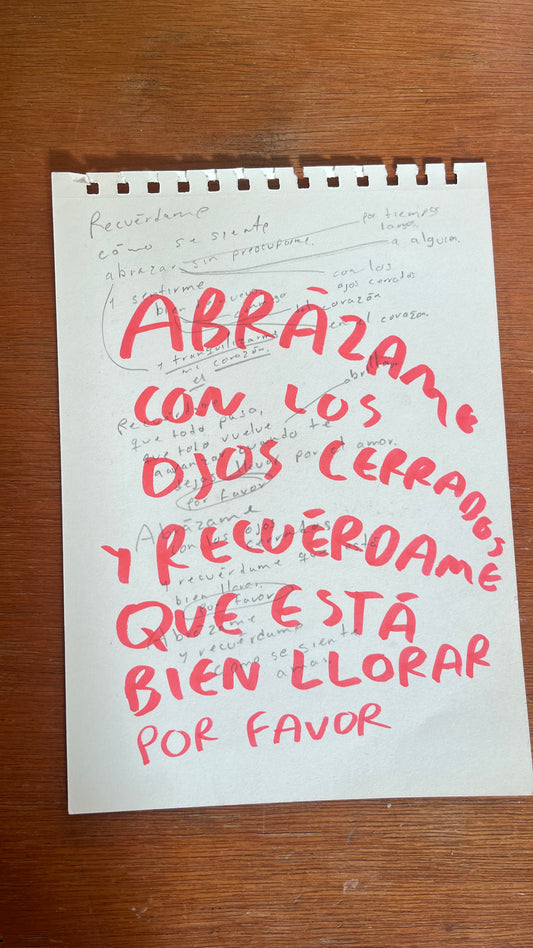 Recuérdame
cómo se siente
abrazar sin preocuparme.
por tiempos
largos.
a alguien.
y sentirme
con los
ojos cerrados
bien
conmigo
del corazón
en el corazón.
y tranquilizarme
mi corazón.
el
Recuérdame
que todo pasa,
que todo vuelve
a brillar
cuando te
dejas llevar por el amor.
por favor
Abrázame
con los ojos cerrados
y recuérdame que está
bien llorar
por favor
Abrázame
y recuérdame
cómo se siente
amar.
ABRÁZAME
CON LOS
OJOS CERRADOS
Y RECUÉRDAME
QUE ESTÁ
BIEN LLORAR
POR FAVOR